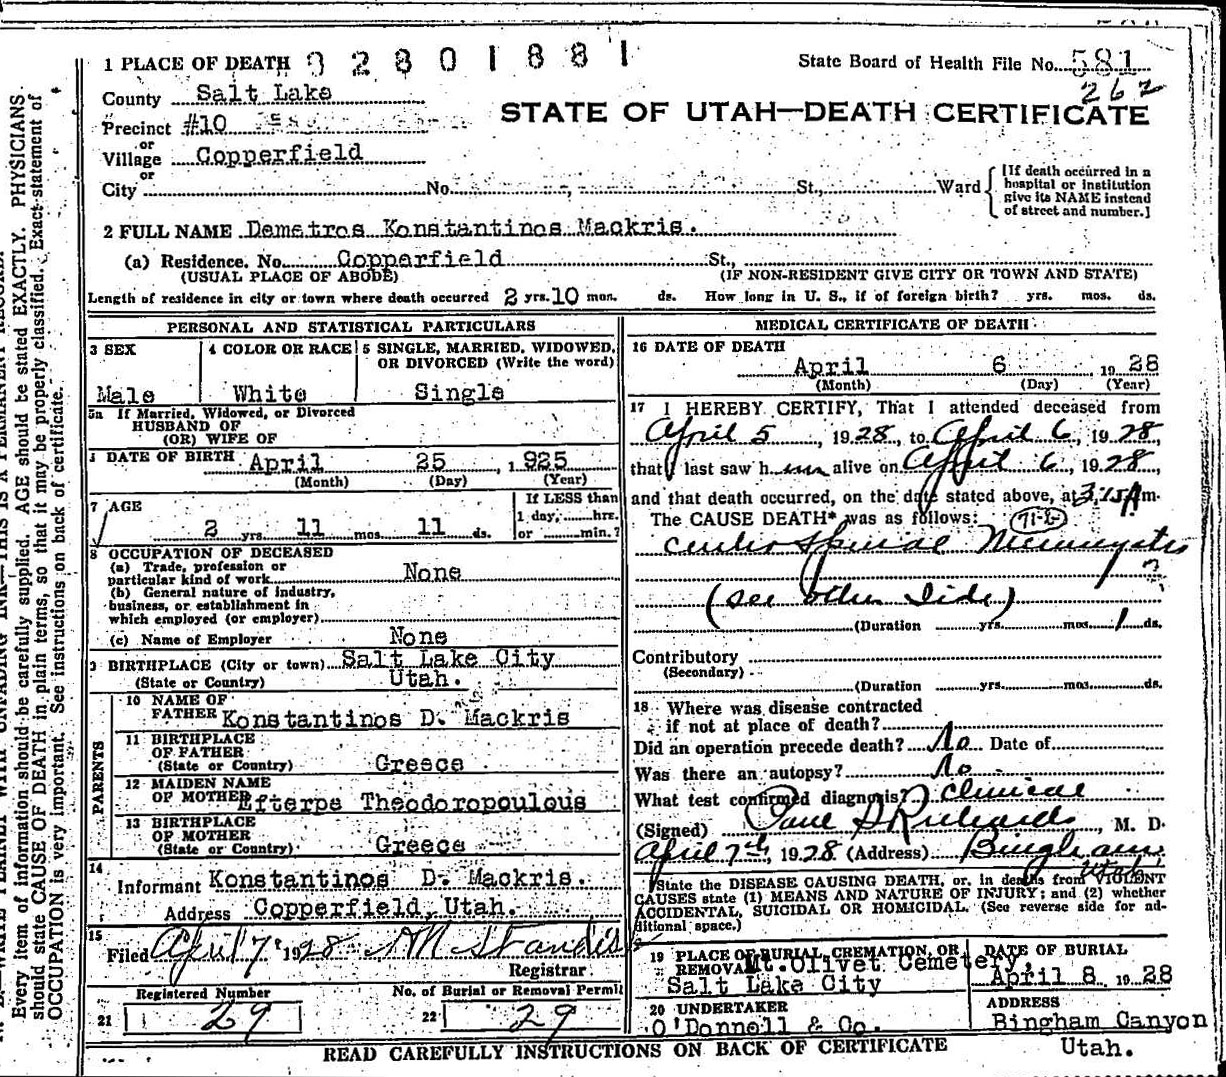 1 PLACE OF DEATH 02801881
State Board of Health File No. 581
262
County Salt Lake
STATE OF UTAH—DEATH CERTIFICATE
Precinct #10
or
Village Copperfield
or
City No. St., Ward
[If death occurred in a hospital or institution give its NAME instead of street and number.]
2 FULL NAME Demetros Konstantinos Mackris.
(a) Residence. No. Copperfield St.,
(USUAL PLACE OF ABODE) (IF NON-RESIDENT GIVE CITY OR TOWN AND STATE)
Length of residence in city or town where death occurred 2 yrs. 10 mos. ds. How long in U. S., if of foreign birth? yrs. mos. ds.
PERSONAL AND STATISTICAL PARTICULARS
3 SEX
Male
4 COLOR OR RACE
White
5 SINGLE, MARRIED, WIDOWED, OR DIVORCED (Write the word)
Single
5a If Married, Widowed, or Divorced
HUSBAND OF
(OR) WIFE OF
DATE OF BIRTH April 25, 1925
(Month) (Day) (Year)
7 AGE
2 yrs. 11 mos. 11 ds.
If LESS than
1 day, hrs.
or min.?
8 OCCUPATION OF DECEASED
(a) Trade, profession or
particular kind of work None
(b) General nature of industry,
business, or establishment in
which employed (or employer)
(c) Name of Employer None
9 BIRTHPLACE (City or town) Salt Lake City
(State or Country) Utah.
PARENTS
10 NAME OF
FATHER Konstantinos D. Mackris
11 BIRTHPLACE
OF FATHER
(State or Country) Greece
12 MAIDEN NAME
OF MOTHER Efterpe Theodoropoulous
13 BIRTHPLACE
OF MOTHER
(State or Country) Greece
14
Informant Konstantinos D. Mackris.
Address Copperfield, Utah.
15
Filed April 7, 1928 Standish
Registrar.
Registered Number
21 29
No. of Burial or Removal Permit
22 29
MEDICAL CERTIFICATE OF DEATH
16 DATE OF DEATH
April 6, 1928
(Month) (Day) (Year)
17 I HEREBY CERTIFY, That I attended deceased from
April 5, 1928, to April 6, 1928,
that I last saw him alive on April 6, 1928,
and that death occurred, on the date stated above, at 3:15 A m.
The CAUSE DEATH* was as follows:
Cerebro Spinal Meningitis
(see other side)
(Duration yrs. mos. 1 ds.
Contributory
(Secondary)
(Duration yrs. mos. ds.
18 Where was disease contracted
if not at place of death?
Did an operation precede death? No Date of
Was there an autopsy? No
What test confirmed diagnosis? Clinical
(Signed) Paul S Richards, M. D.
April 7th, 1928 (Address) Bingham Utah
*State the DISEASE CAUSING DEATH, or, in deaths from VIOLENT
CAUSES state (1) MEANS AND NATURE OF INJURY; and (2) whether
ACCIDENTAL, SUICIDAL OR HOMICIDAL. (See reverse side for ad-
ditional space.)
19 PLACE OF BURIAL, CREMATION, OR
REMOVAL Mt. Olivet Cemetery,
Salt Lake City
DATE OF BURIAL
April 8, 1928
20 UNDERTAKER
O'Donnell & Co.
ADDRESS
Bingham Canyon
Utah.
READ CAREFULLY INSTRUCTIONS ON BACK OF CERTIFICATE
Every item of information should be carefully supplied. AGE should be stated EXACTLY. PHYSICIANS
should state CAUSE OF DEATH in plain terms, so that it may be properly classified. Exact statement of
OCCUPATION is very important. See instructions on back of certificate.